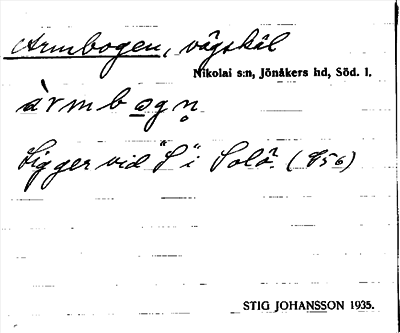 Armbogen, vägskäl
Nikolai s:n, Jönåkers hd, Söd. l.
àrmbogn̥
Ligger vid "S" i Solö. (956)
STIG JOHANSSON 1935.